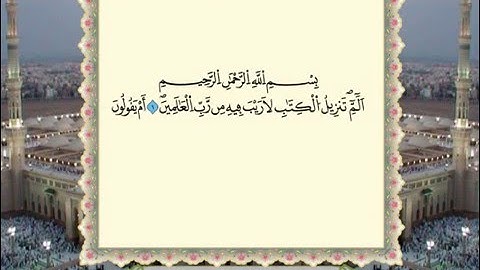 بِسْمِ اِللَّهِ اِلرَّحْمَٰنِ اِلرَّحِيمِ
أَلَٓمِّٓۖ تَنزِيلُ اُلْكِتَٰبِ لَا رَيْبَ فِيهِ مِن رَّبِّ اِلْعَٰلَمِينَۖ ١ أَمْ يَقُولُونَ